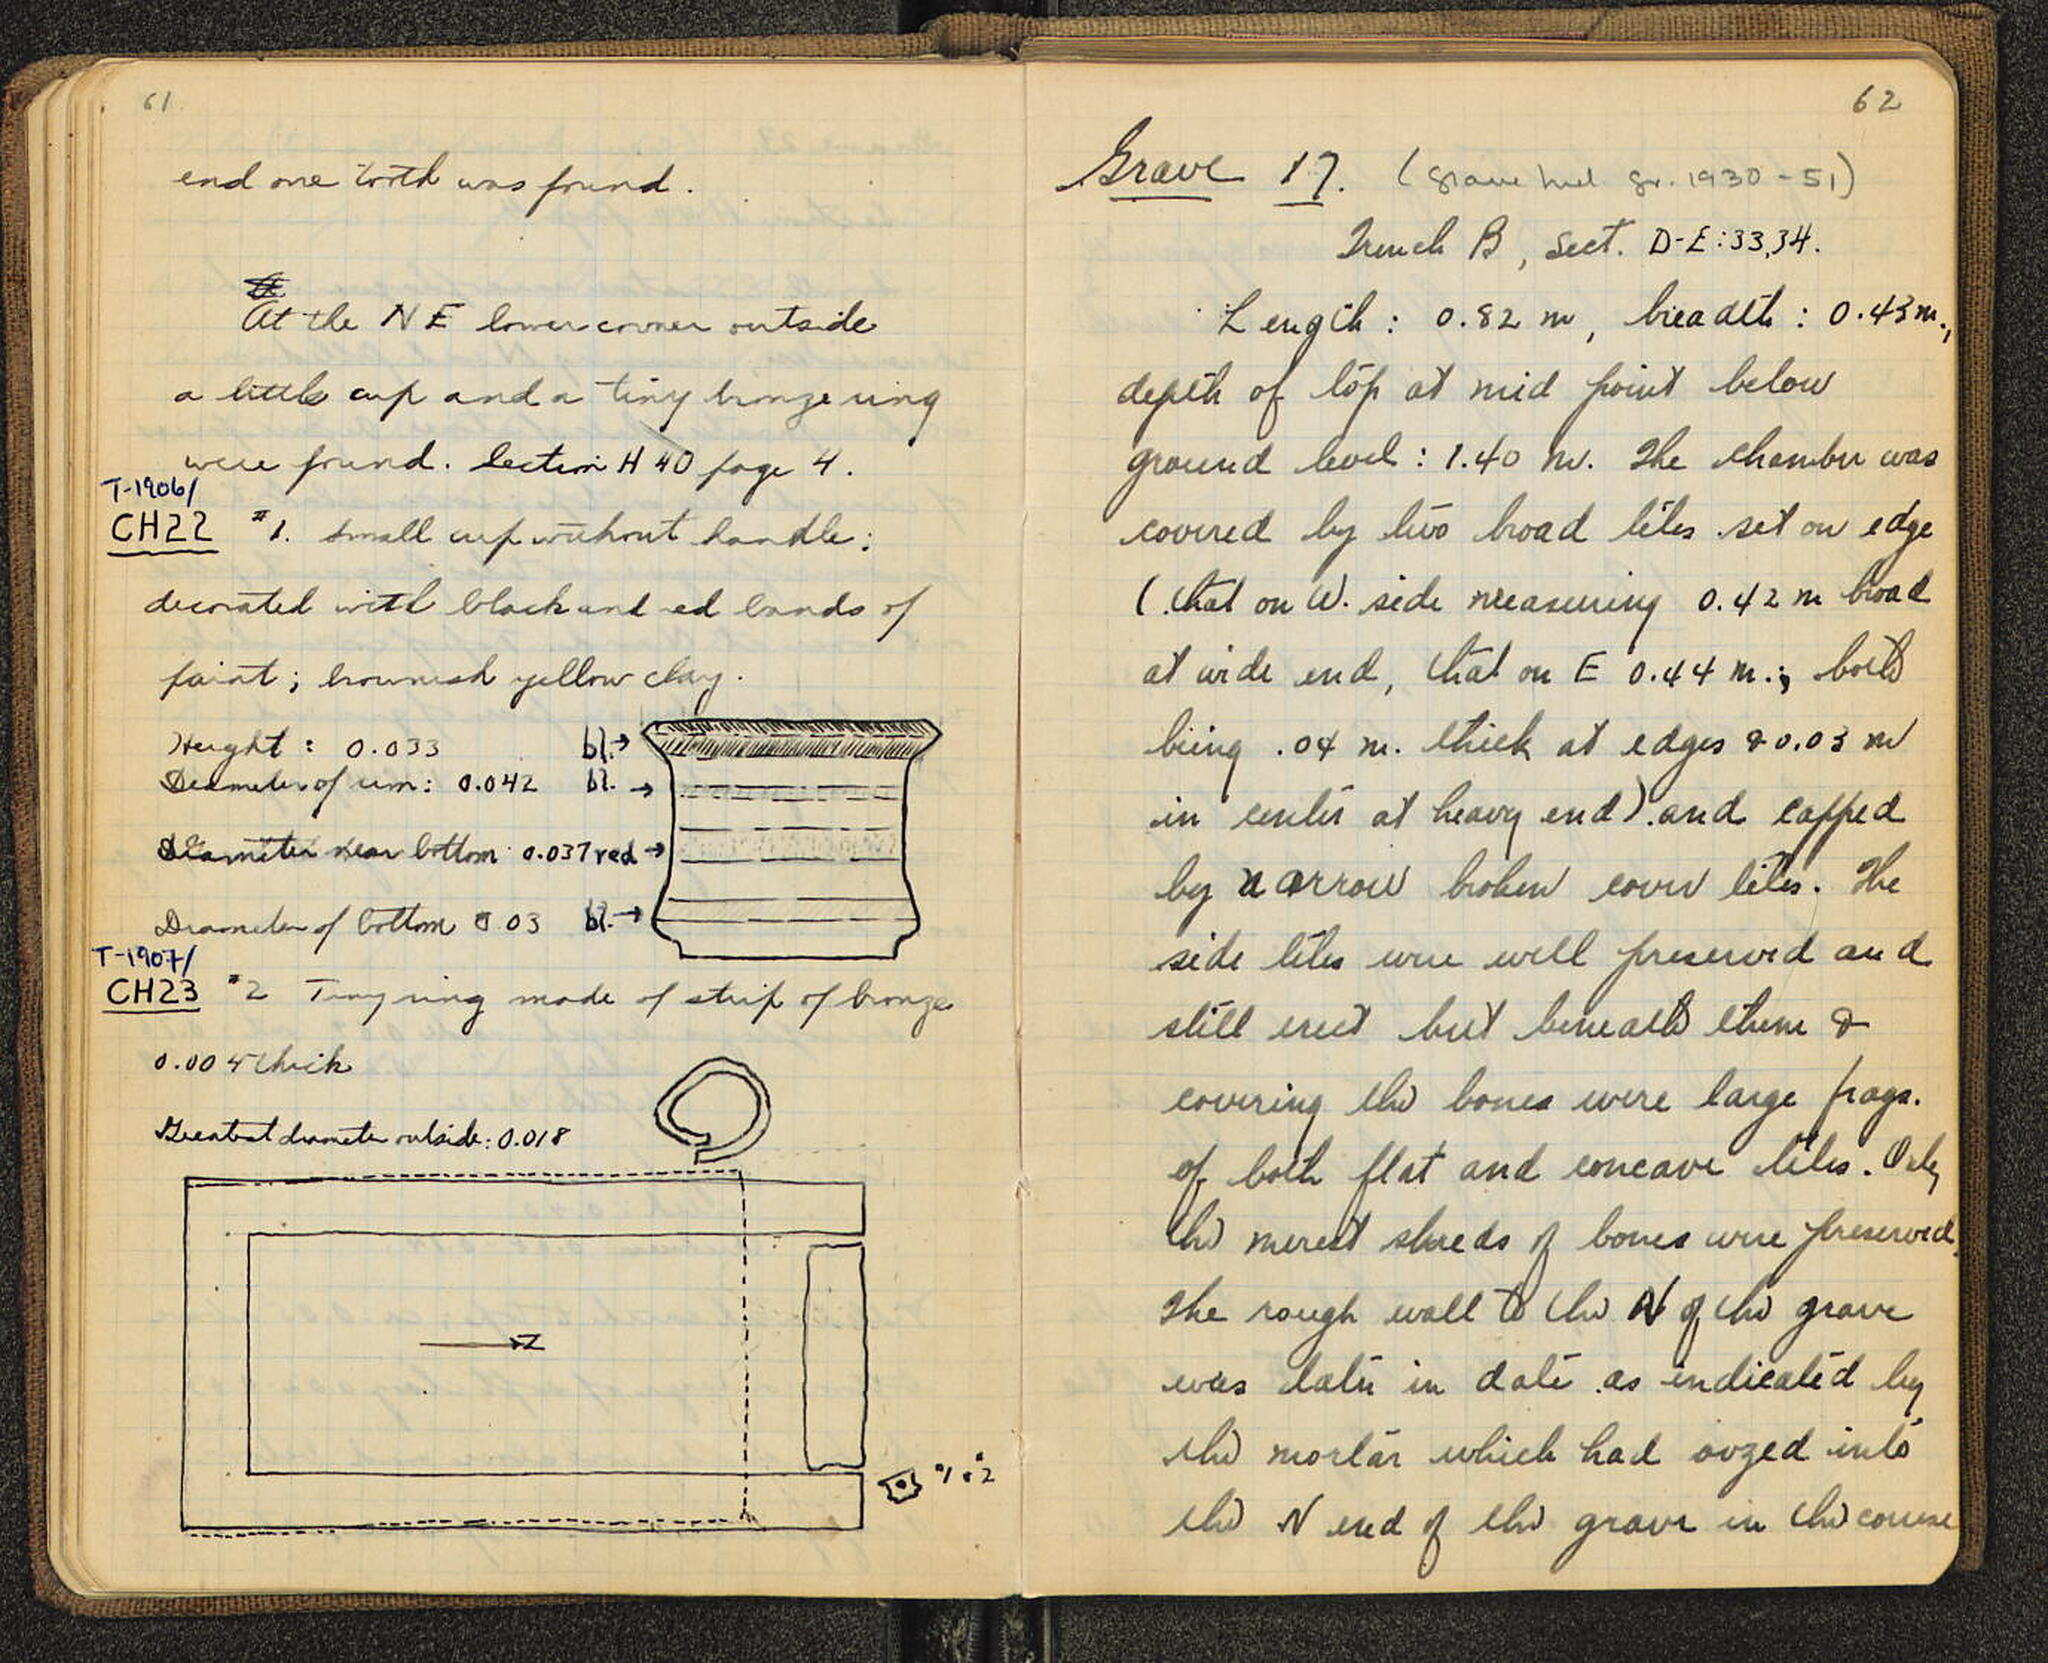 61
end one tooth was found.
At the NE lower corner outside
a little cup and a tiny bronze ring
were found. Section H 40 page 4.
T-1906/
CH22 #1. Small cup without handle;
decorated with black and red bands of
paint; brownish yellow clay.
Height: 0.033 bl.→
Diameter of rim: 0.042 bl. →
Diameter near bottom 0.037 red →
Diameter of bottom 0.03 bl. →
T-1907/
CH23 #2 Tiny ring made of strip of bronze
0.004 thick
Greatest diameter outside: 0.018
N
#1 & #2
62
Grave 17. (grave gr. 1930-51)
Trench B, Sect. D-E:33,34.
Length: 0.82 m, breadth: 0.43 m.,
depth of top at mid point below
ground level: 1.40 m. The chamber was
covered by two broad tiles set on edge
(that on W. side measuring 0.42 m broad
at wide end, that on E 0.44 m.; both
being .04 m. thick at edges & 0.03 m
in center at heavy end) and capped
by narrow broken cover tiles. The
side tiles were well preserved and
still erect but beneath them &
covering the bones were large frags.
of both flat and concave tiles. Only
the merest shreds of bones were preserved.
The rough wall to the N of the grave
was later in date as indicated by
the mortar which had oozed into
the N end of the grave in the course